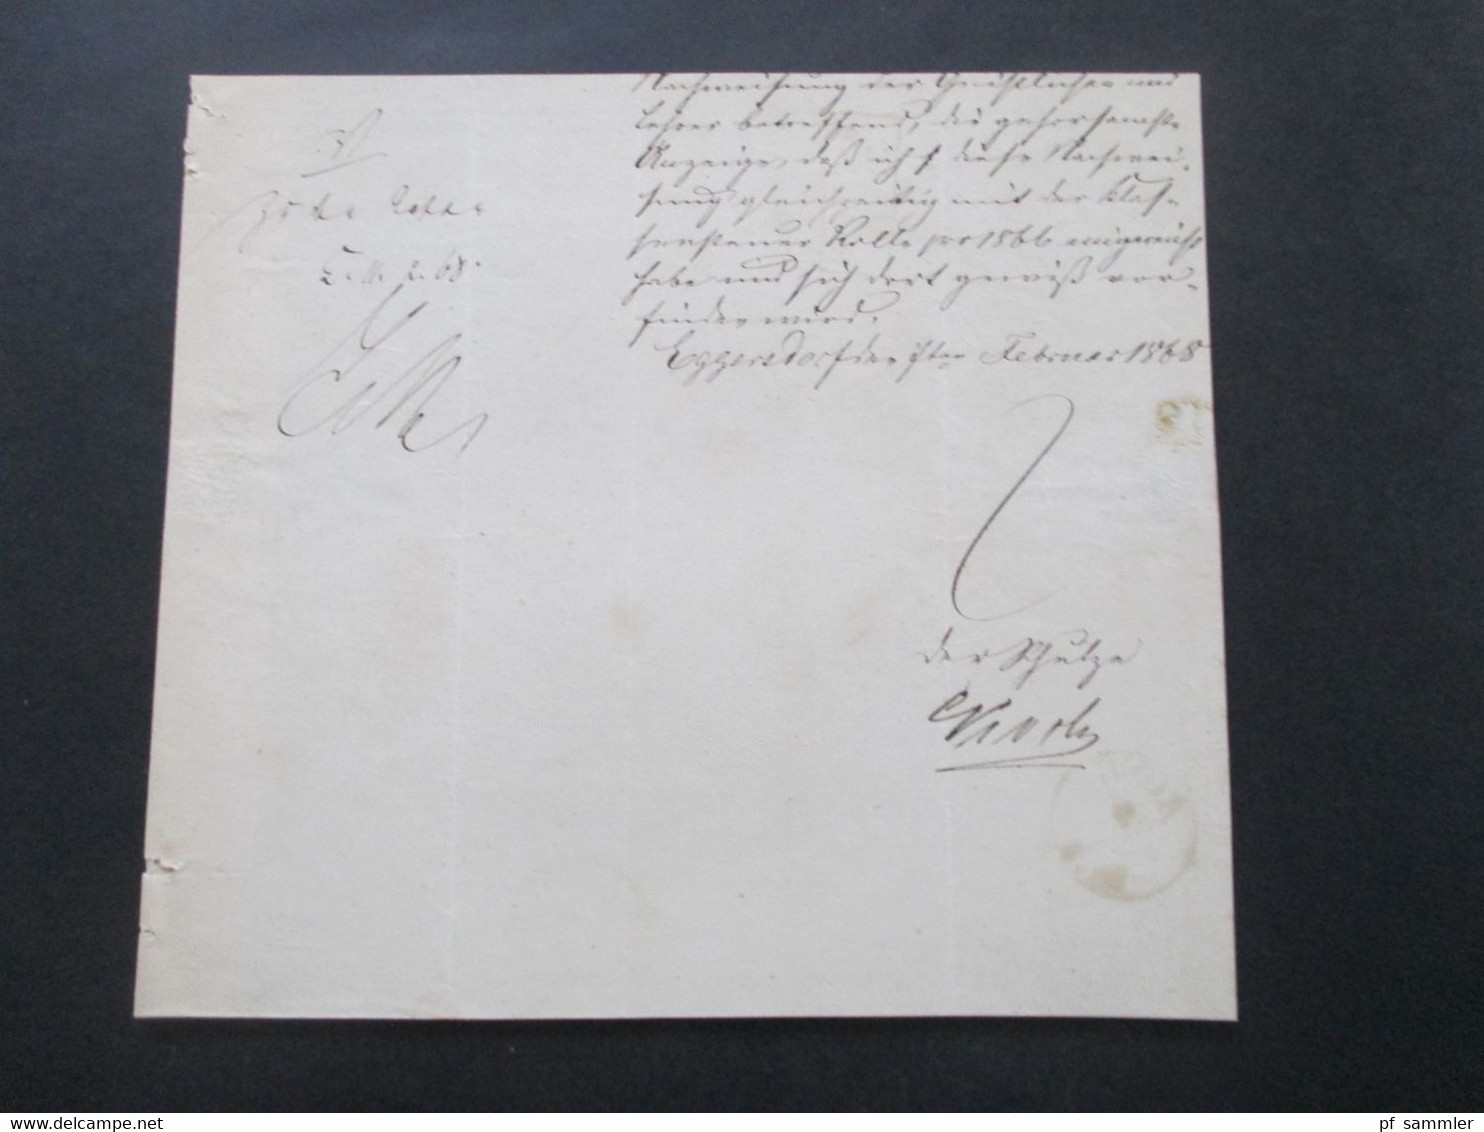 Nachweisung der Geistlichen und
Lehrer betreffend, die gehorsamste
Anzeige, daß ich diese Nachwei-
sung gleichzeitig mit der Klas-
sensteuer Rolle pro 1866 eingereicht
habe und sich dort gewiß vor-
finden wird.
Eggersdorf den ten Februar 1868
Zu den Acten
2. 68.
Der Schulze
www.delcampe.net
pf_sammler